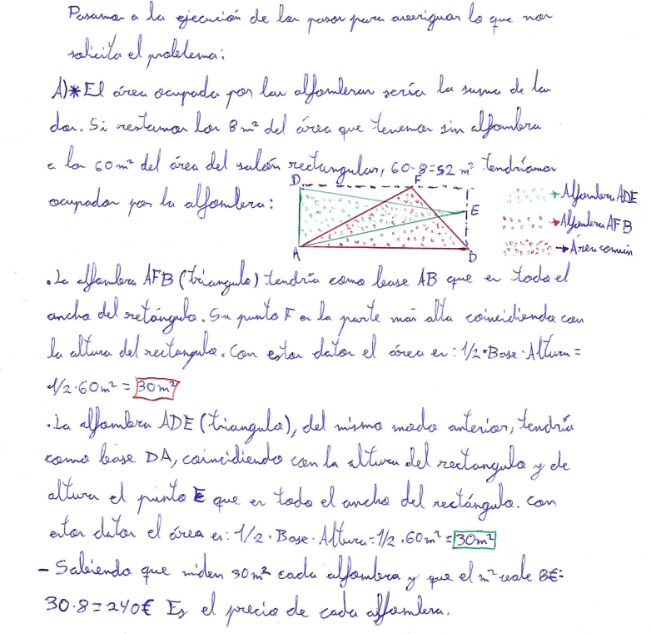 Pasamos a la ejecución de los pasos para averiguar lo que nos
solicita el problema:
A)* El área ocupada por las alfombras sería la suma de las
dos. Si restamos los 8m² del área que tenemos sin alfombra
a los 60m² del área del salón rectangular, 60-8=52 m² tendríamos
ocupados por la alfombra:
D
F
E
A
B
→ Alfombra ADE
→ Alfombra AFB
→ Área común
. La alfombra AFB (triangulo) tendría como base AB que es todo el
ancho del retángulo. Su punto F es la parte más alta coincidiendo con
la altura del rectangulo. Con estos datos el área es: 1/2 · Base · Altura =
1/2 · 60m² = 30m²
. La alfombra ADE (triangulo), del mismo modo anterior, tendría
como base DA, coincidiendo con la altura del rectangulo y de
altura el punto E que es todo el ancho del rectángulo. Con
estos datos el área es: 1/2 · Base · Altura = 1/2 · 60m² = 30m²
- Sabiendo que miden 30m² cada alfombra y que el m² vale 8€:
30 · 8 = 240€ Es el precio de cada alfombra.